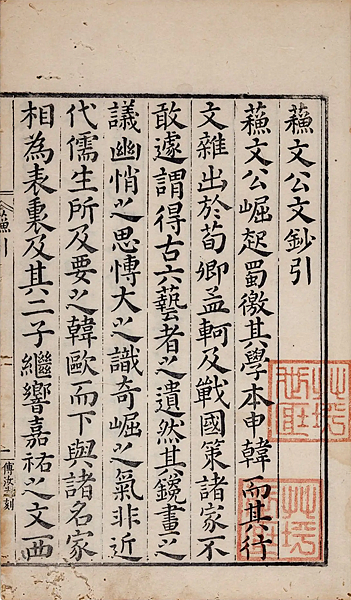 蘓文公文鈔引
蘓文公崛起蜀徼其學本申韓而其行
文雜出於荀卿孟軻及戰國策諸家不
敢遽謂得古六藝者之遺然其鑱畫之
議幽悄之思博大之識奇崛之氣非近
代儒生所及要之韓歐而下與諸名家
相為表裏及其二子繼響嘉祐之文西
引
傅汝光刻